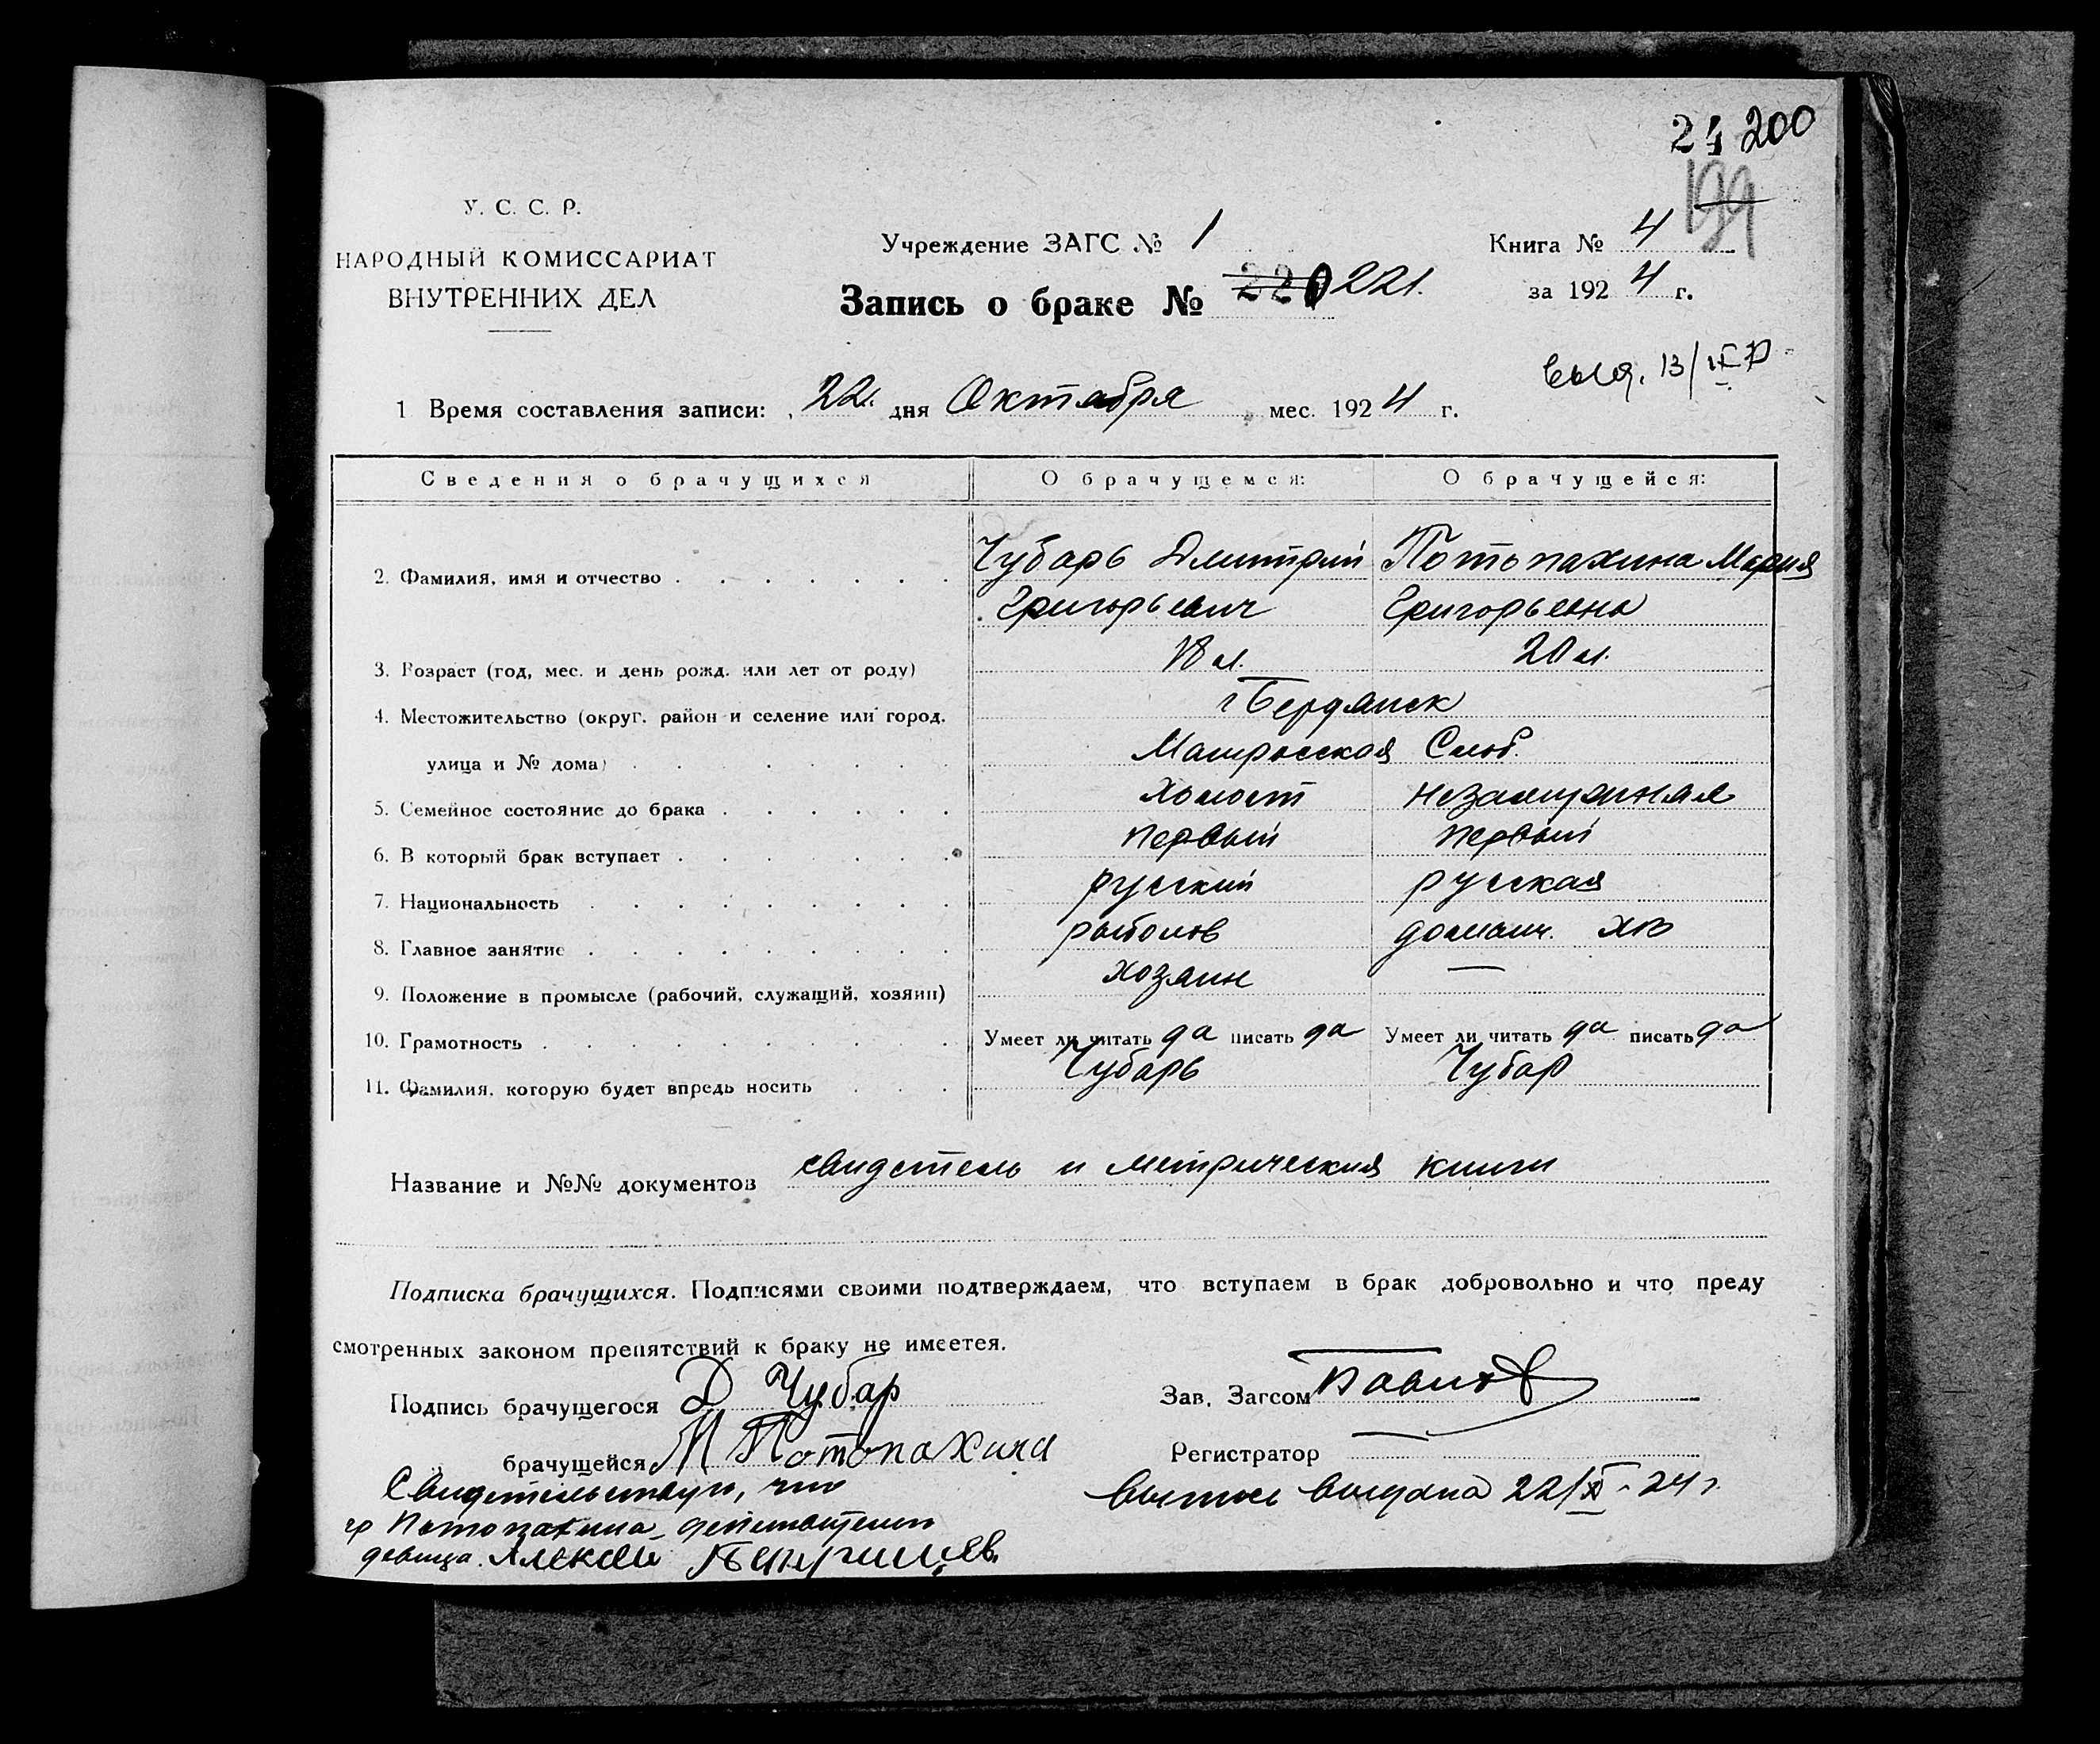 24 200
199
У. С. С. Р.
НАРОДНЫЙ КОМИССАРИАТ
ВНУТРЕННИХ ДЕЛ
Учреждение ЗАГС № 1
Книга № 4
Запись о браке № 220 221.
за 1924 г.
выд. 13/
1 Время составления записи: 22 дня Октября мес. 1924 г.
Сведения о брачущихся О брачущемся: О брачущейся:
2. Фамилия, имя и отчество Чубарь Дмитрий Потопахина Мария
Григорьевич Григорьевна
3. Возраст (год, мес. и день рожд. или лет от роду) 18 л. 20 л.
4. Местожительство (округ, район и селение или город, г Бердянск
улица и № дома) Матросская Слоб.
5. Семейное состояние до брака холост незамужняя
6. В который брак вступает первый первый
7. Национальность русский русская
8. Главное занятие рыболов домашн. хоз
9. Положение в промысле (рабочий, служащий, хозяин) хозяин —
10. Грамотность Умеет ли читать да писать да Умеет ли читать да писать да
11. Фамилия, которую будет впредь носить Чубарь Чубар
Название и №№ документов свидетель и метрическия книги
Подписка брачущихся. Подписями своими подтверждаем, что вступаем в брак добровольно и что преду
смотренных законом препятствий к браку не имеется.
Подпись брачущегося Д Чубар Зав. Загсом
брачущейся М Потопахина Регистратор
Свидетельствую, что
гр Потопахина действительно
девица. Алексей
выпись выдана 22/X-24 г.